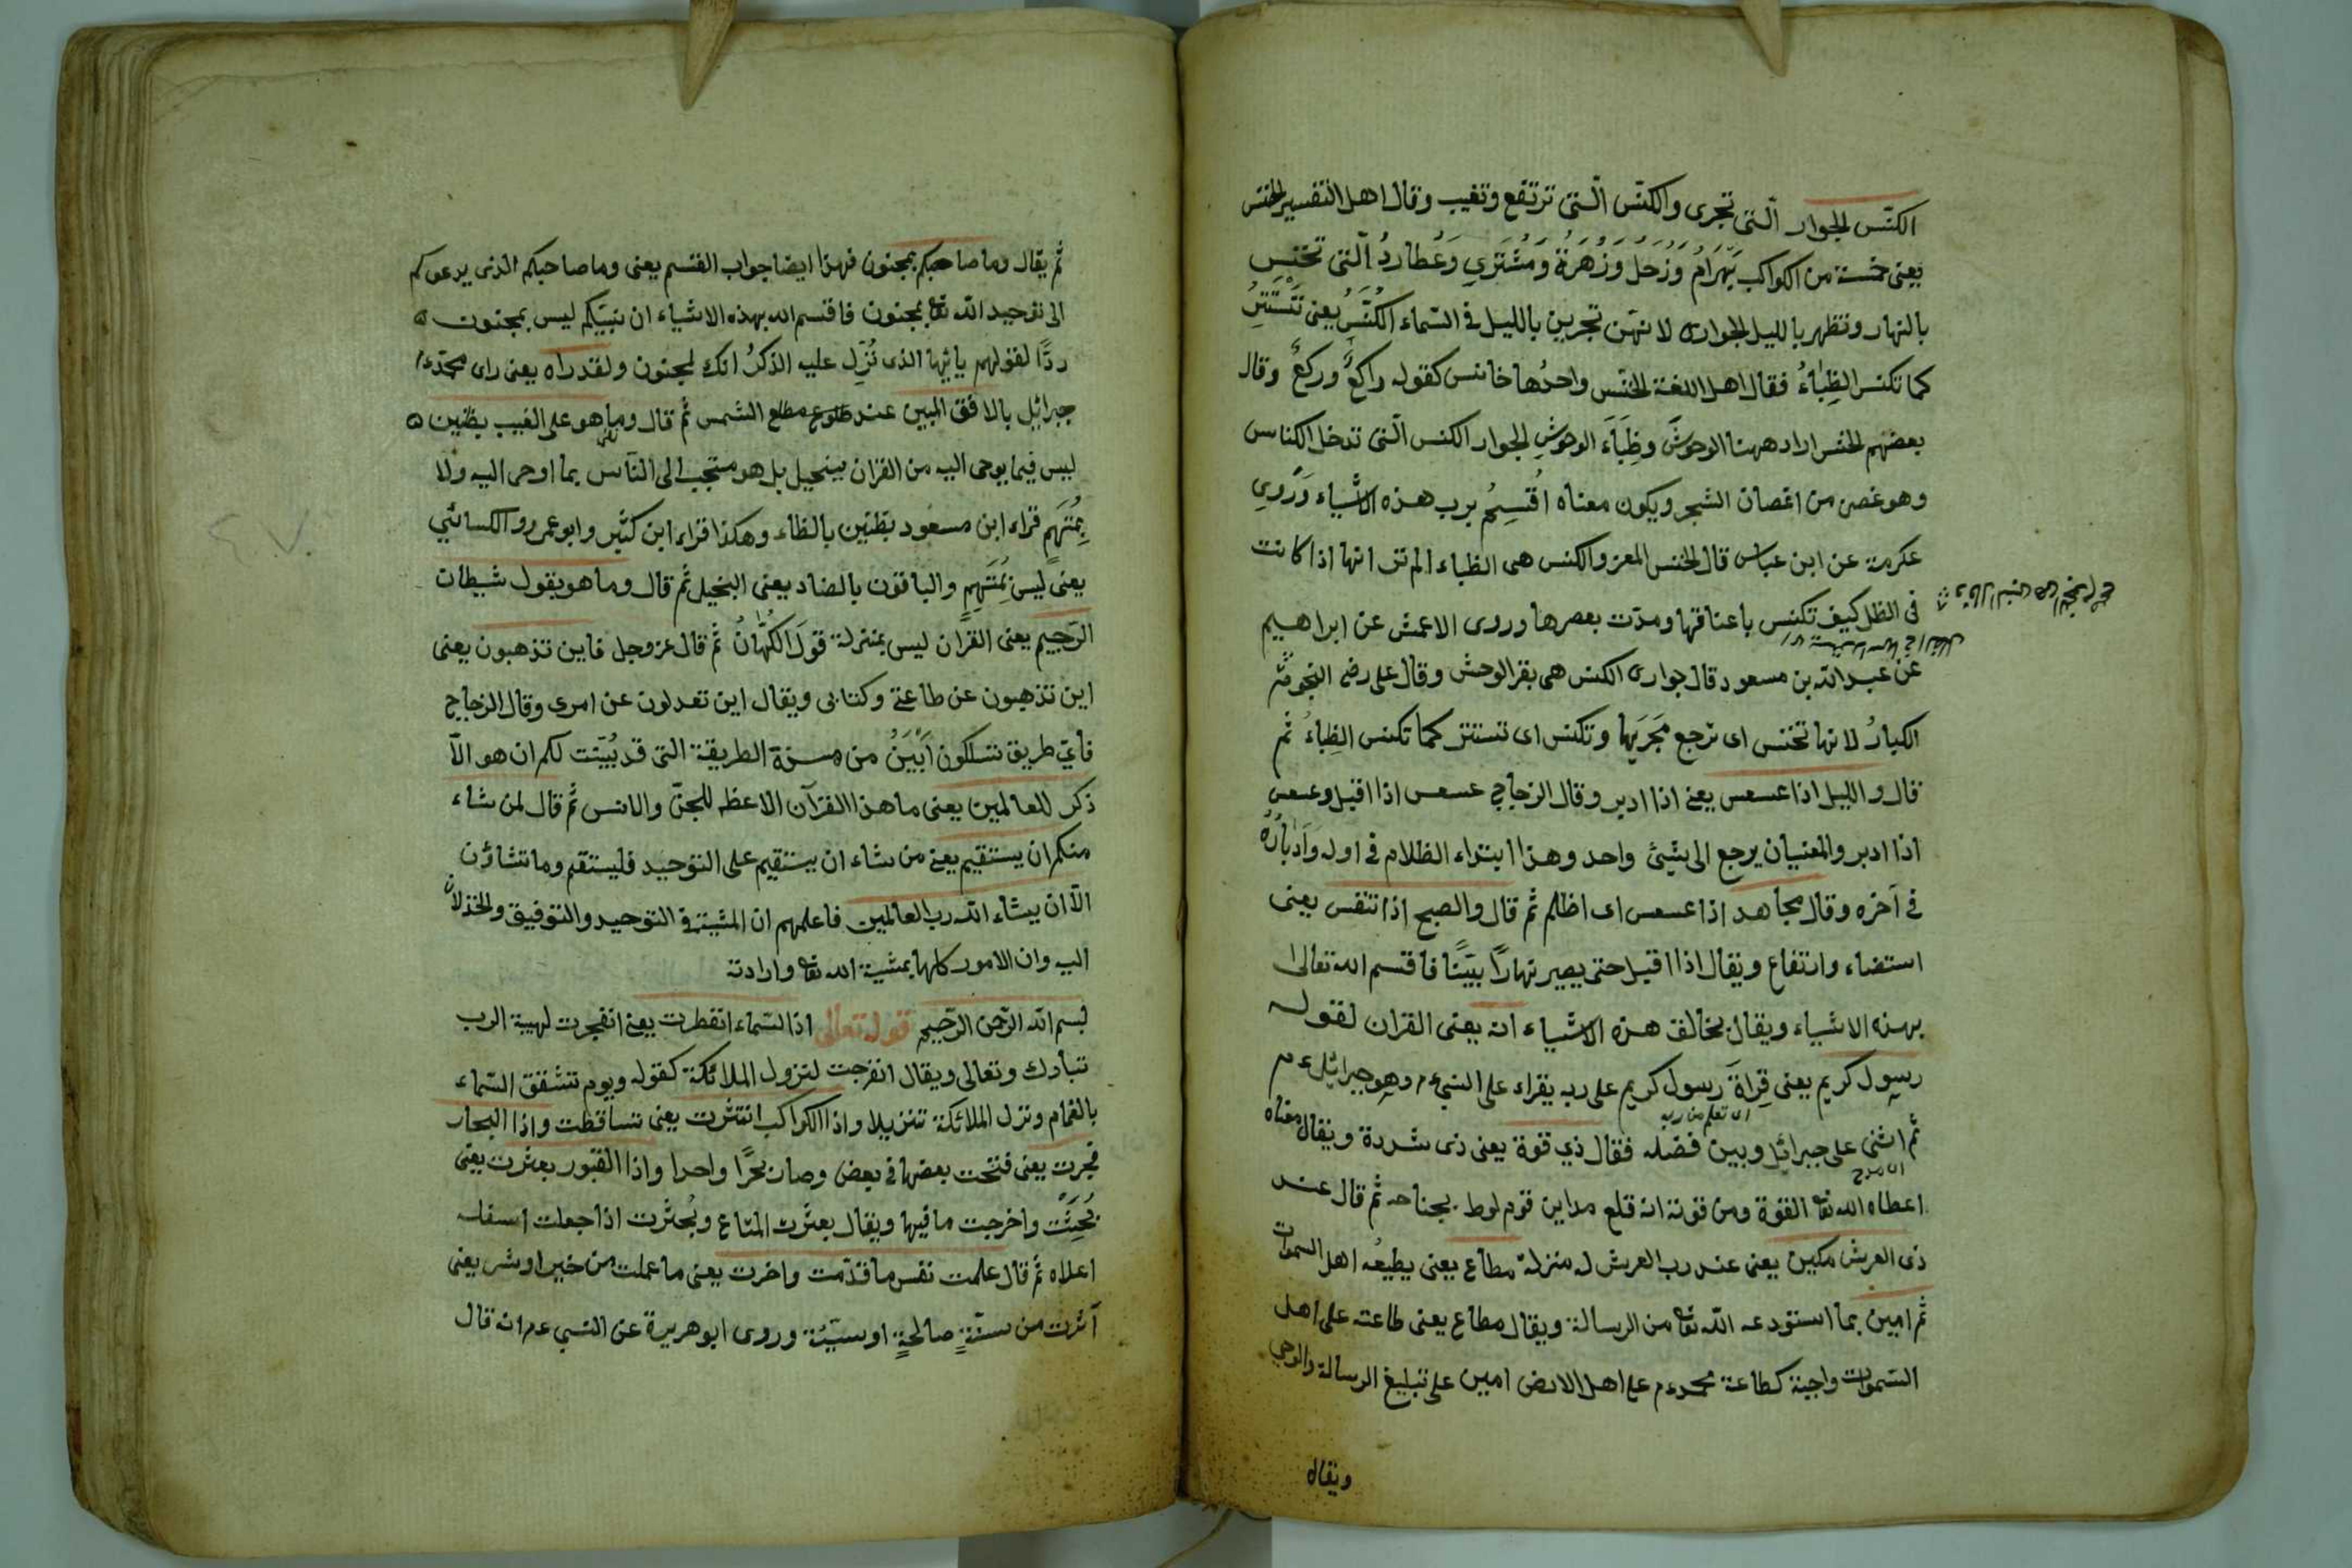 الكنّس الجوار الّتى تجرى والكنّس الّتى ترتفع وتغيب وقال اهل التفسير الخنس
يعنى خمسة من الكواكب بَهْرَامُ وَزُحَلُ وَزُهَرَةُ وَمُشْتَرِي وَعُطَارِدُ الّتى تختنس
بالنهار وتظهر بالليل الجوارى لانهّن تجرين بالليل فى السّماء الكُنَّسُ يعنى تَسْتَتِرُ
كما تكنس الظِباءُ فقال اهل اللغة الخنّس واحدُها خانس كقوله راكعٌ وركعٌ وقال
بعضهم الخنس اراد ههنا الوحوشَ وظِبَاءَ الوحوشِ الجوار الكنس الّتى تدخل الكناس
وهو غصن من اغصان الشجر ويكون معناه اُقْسِمُ برب هذه الاشياء وَرُوِي
عكرمة عن ابن عباس قال الخنس المعز والكنس هى الظباء الم تر انها اذا كانت
فى الظل كيف تكنس باعناقها ومدّت بعصرها وروى الاعمش عن ابراهيم
عن عبد الله بن مسعود قال جوارى الكنس هى بقر الوحش وقال على رضى النجوم
الكبارُ لانها تخنس اى ترجع مَجَرَيهَا وتكنس اى تستتر كما تكنس الظِباءُ ثم
قال والليل اذا عسعس يعنى اذا ادبر وقال الزجاج عسعس اذا اقبل وعسعس
اذا ادبر والمعنيان يرجع الى شئ واحد وهذا ابتداء الظلام فى اوله وَاَدْبَارُهُ
فى آخره وقال مجاهد اذا عسعس اى اظلم ثم قال والصبح اذا تنفس يعنى
استضاء وارتفاع ويقال اذا اقبل حتى يصير نهارًا بيّنًا فاقسم الله تعالى
بهذه الاشياء ويقال بخالق هذه الاشياء انه يعنى القران لقول
رسول كريم يعنى قِرأةَ رسول كريم على ربه يقراء على النبى عم وهو جبرائيل ع م
اى تعلم من ربه
ثم اثنى على جبرائيل وبين فضله فقال ذي قوة يعنى ذى شدة ويقال معناه
اى مدح
اعطاه الله تعا القوة ومن قوته انه قلع مداين قوم لوط بجناحه ثم قال عند
ذى العرش مكين يعنى عند رب العرش له منزلة مطاع يعنى يطيعُه اهل السموات
ثم امين بما استودعه الله تعا من الرسالة ويقال مطاع يعنى طاعته على اهل
السّموات واجبة كطاعة محمد عم على اهل الارض امين على تبليغ الرسالة والوحي
ويقال
ثم يقال وما صاحبكم بمجنون فهذا ايضا جواب القسم يعنى وما صاحبكم الذى يدعوكم
الى توحيد الله تعا بمجنون فاقسم الله بهذه الاشياء ان نبيّكم ليس بمجنون
ردًّا لقولهم يا ايّها الذى نُزِّل عليه الذكرُ انك لمجنون ولقد راه يعنى راى محمّد
جبرائيل بالافق المبين عند طلوع مطلع الشمس ثم قال وما هو على الغيب بظنين
ليس فيما يوحى اليه من القران ببخيل بل هو الى النّاس بما اوحى اليه ولا
بِمُتَّهَمٍ قراء ابن مسعود بظنين بالظاء وهكذا قراء ابن كثير وابو عمرو والكسائي
يعنى ليس بمُتَّهِمٍ والباقون بالضاد يعنى البخيل ثم قال وما هو بقول شيطان
الرّجيم يعنى القران ليس بمنزلة قول الكُهّانُ ثم قال عز وجل فاين تذهبون يعنى
اين تذهبون عن طاعتى وكتابى ويقال اين تعدلون عن امرى وقال الزجاج
فايّ طريق تسلكون اَبْيَنُ من هذه الطريقة التى قد بُيّنت لكم ان هو الاّ
ذكر للعالمين يعنى ما هذا القرآن الا عظة للجنّ والانس ثم قال لمن شاء
منكم ان يستقيم يعنى من شاء ان يستقيم على التوحيد فليستقم وما تشاؤن
الاّ ان يشاء الله رب العالمين فاعلمهم ان المشية فى التوحيد والتوفيق والخذلان
اليه وان الامور كلها بمشية الله تعا وارادته
بسم الله الرّحمن الرّحيم قوله تعالى اذا السّماء انفطرت يعنى انفجرت لهيبة الرب
تبارك وتعالى ويقال انفرجت لنزول الملائكة كقوله ويوم تشقق السّماء
بالغمام ونزل الملائكة تنزيلا واذا الكواكب انتثرت يعنى تساقطت واذا البحار
فجرت يعنى فتحت بعضها فى بعض وصار بحرًا واحدا واذا القبور بعثرت يعنى
بُحِثَت واخرجت ما فيها ويقال بعثرت المتاع وبُحثرت اذا جعلت اسفله
اعلاه ثم قال علمت نفس ما قدّمت واخرت يعنى ما عملت من خير او شر يعنى
آثرت من سنّةٍ صالحةٍ او سيّئة وروى ابو هريرة عن النبى عم انه قال